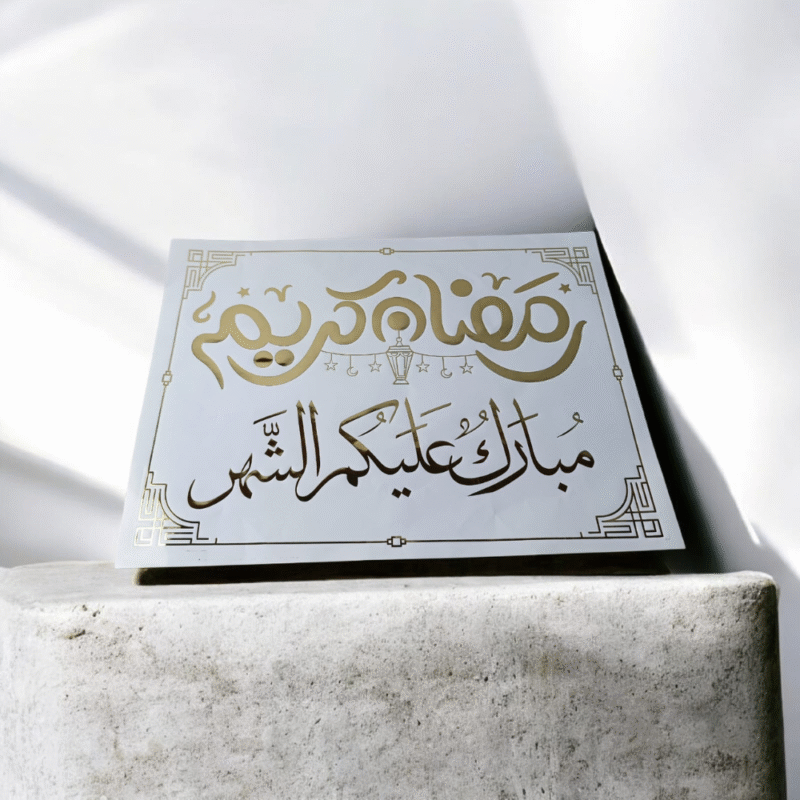 رمضان كريم
مُبَارَكُ عَلَيكُم الشَّهر